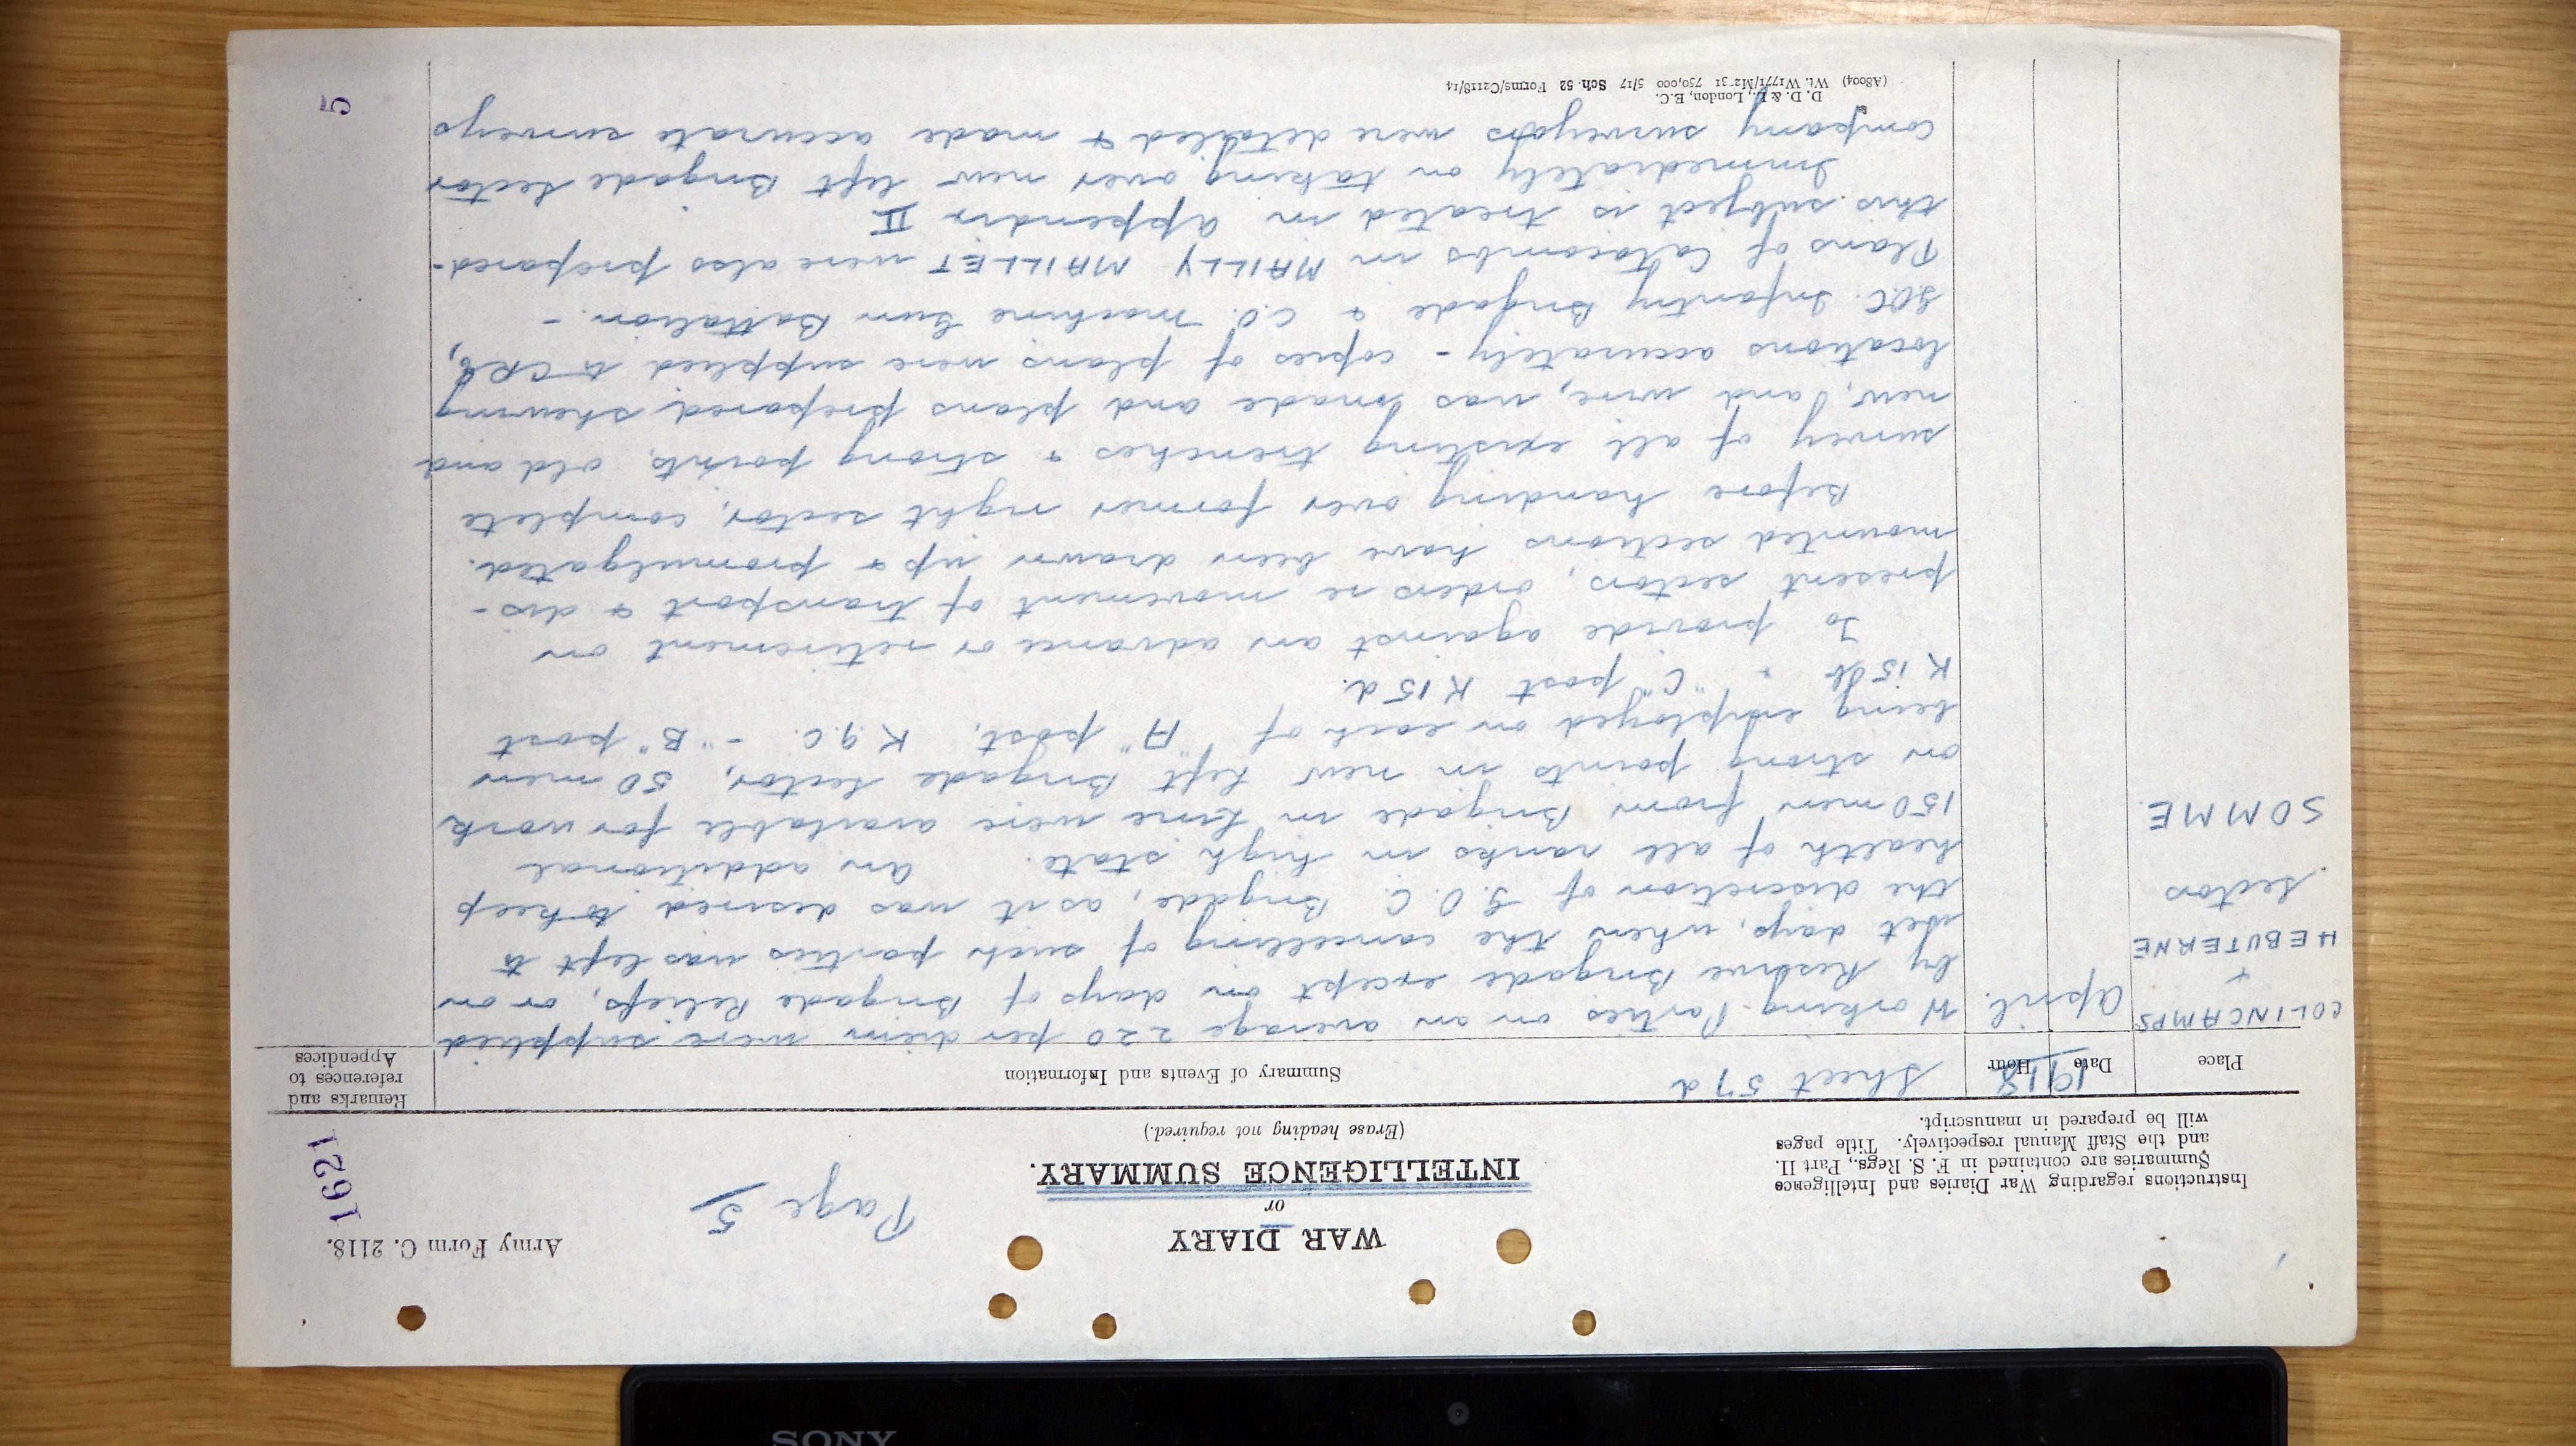 Army Form C. 2118.
1621
WAR DIARY
or
INTELLIGENCE SUMMARY.
(Erase heading not required.)
Page 5
Instructions regarding War Diaries and Intelligence
Summaries are contained in F. S. Regs., Part II.
and the Staff Manual respectively. Title pages
will be prepared in manuscript.
Place
Date
Hour
1918
Sheet 57d
Summary of Events and Information
Remarks and
references to
Appendices
COLINCAMPS
+
HEBUTERNE
Sectors
SOMME.
April.
Working Parties on an average 220 per diem were supplied
by Reserve Brigade except on days of Brigade Reliefs, or on
wet days, when the cancelling of such parties was left to
the discretion of G.O.C. Brigade, as it was desired to keep
health of all ranks in high state. An additional
150 men from Brigade in Line were available for work
on strong points in new Left Brigade Sector, 50 men
being employed on each of "A" post, K 9.c. - "B" post
K 15 b + "C" post K 15 d.
To provide against an advance or retirement on
present sectors, orders re movement of transport + dis-
mounted sections have been drawn up + promulgated.
Before handing over former right sector, complete
survey of all existing trenches + strong points, old and
new, and wire, was made and plans prepared shewing
locations accurately - copies of plans were supplied to CRE,
GOC Infantry Brigade + C.O. Machine Gun Battalion. -
Plans of Catacombs in MAILLY MAILLET were also prepared -
this subject is treated in Appendix II
Immediately on taking over new left Brigade Sector
company surveyors were detailed + made accurate surveys
D. D. & L., London, E.C.
(A8004) Wt. W1771/M2 31 750,000 5/17 Sch. 52 Forms/C2118/14
5
SONY